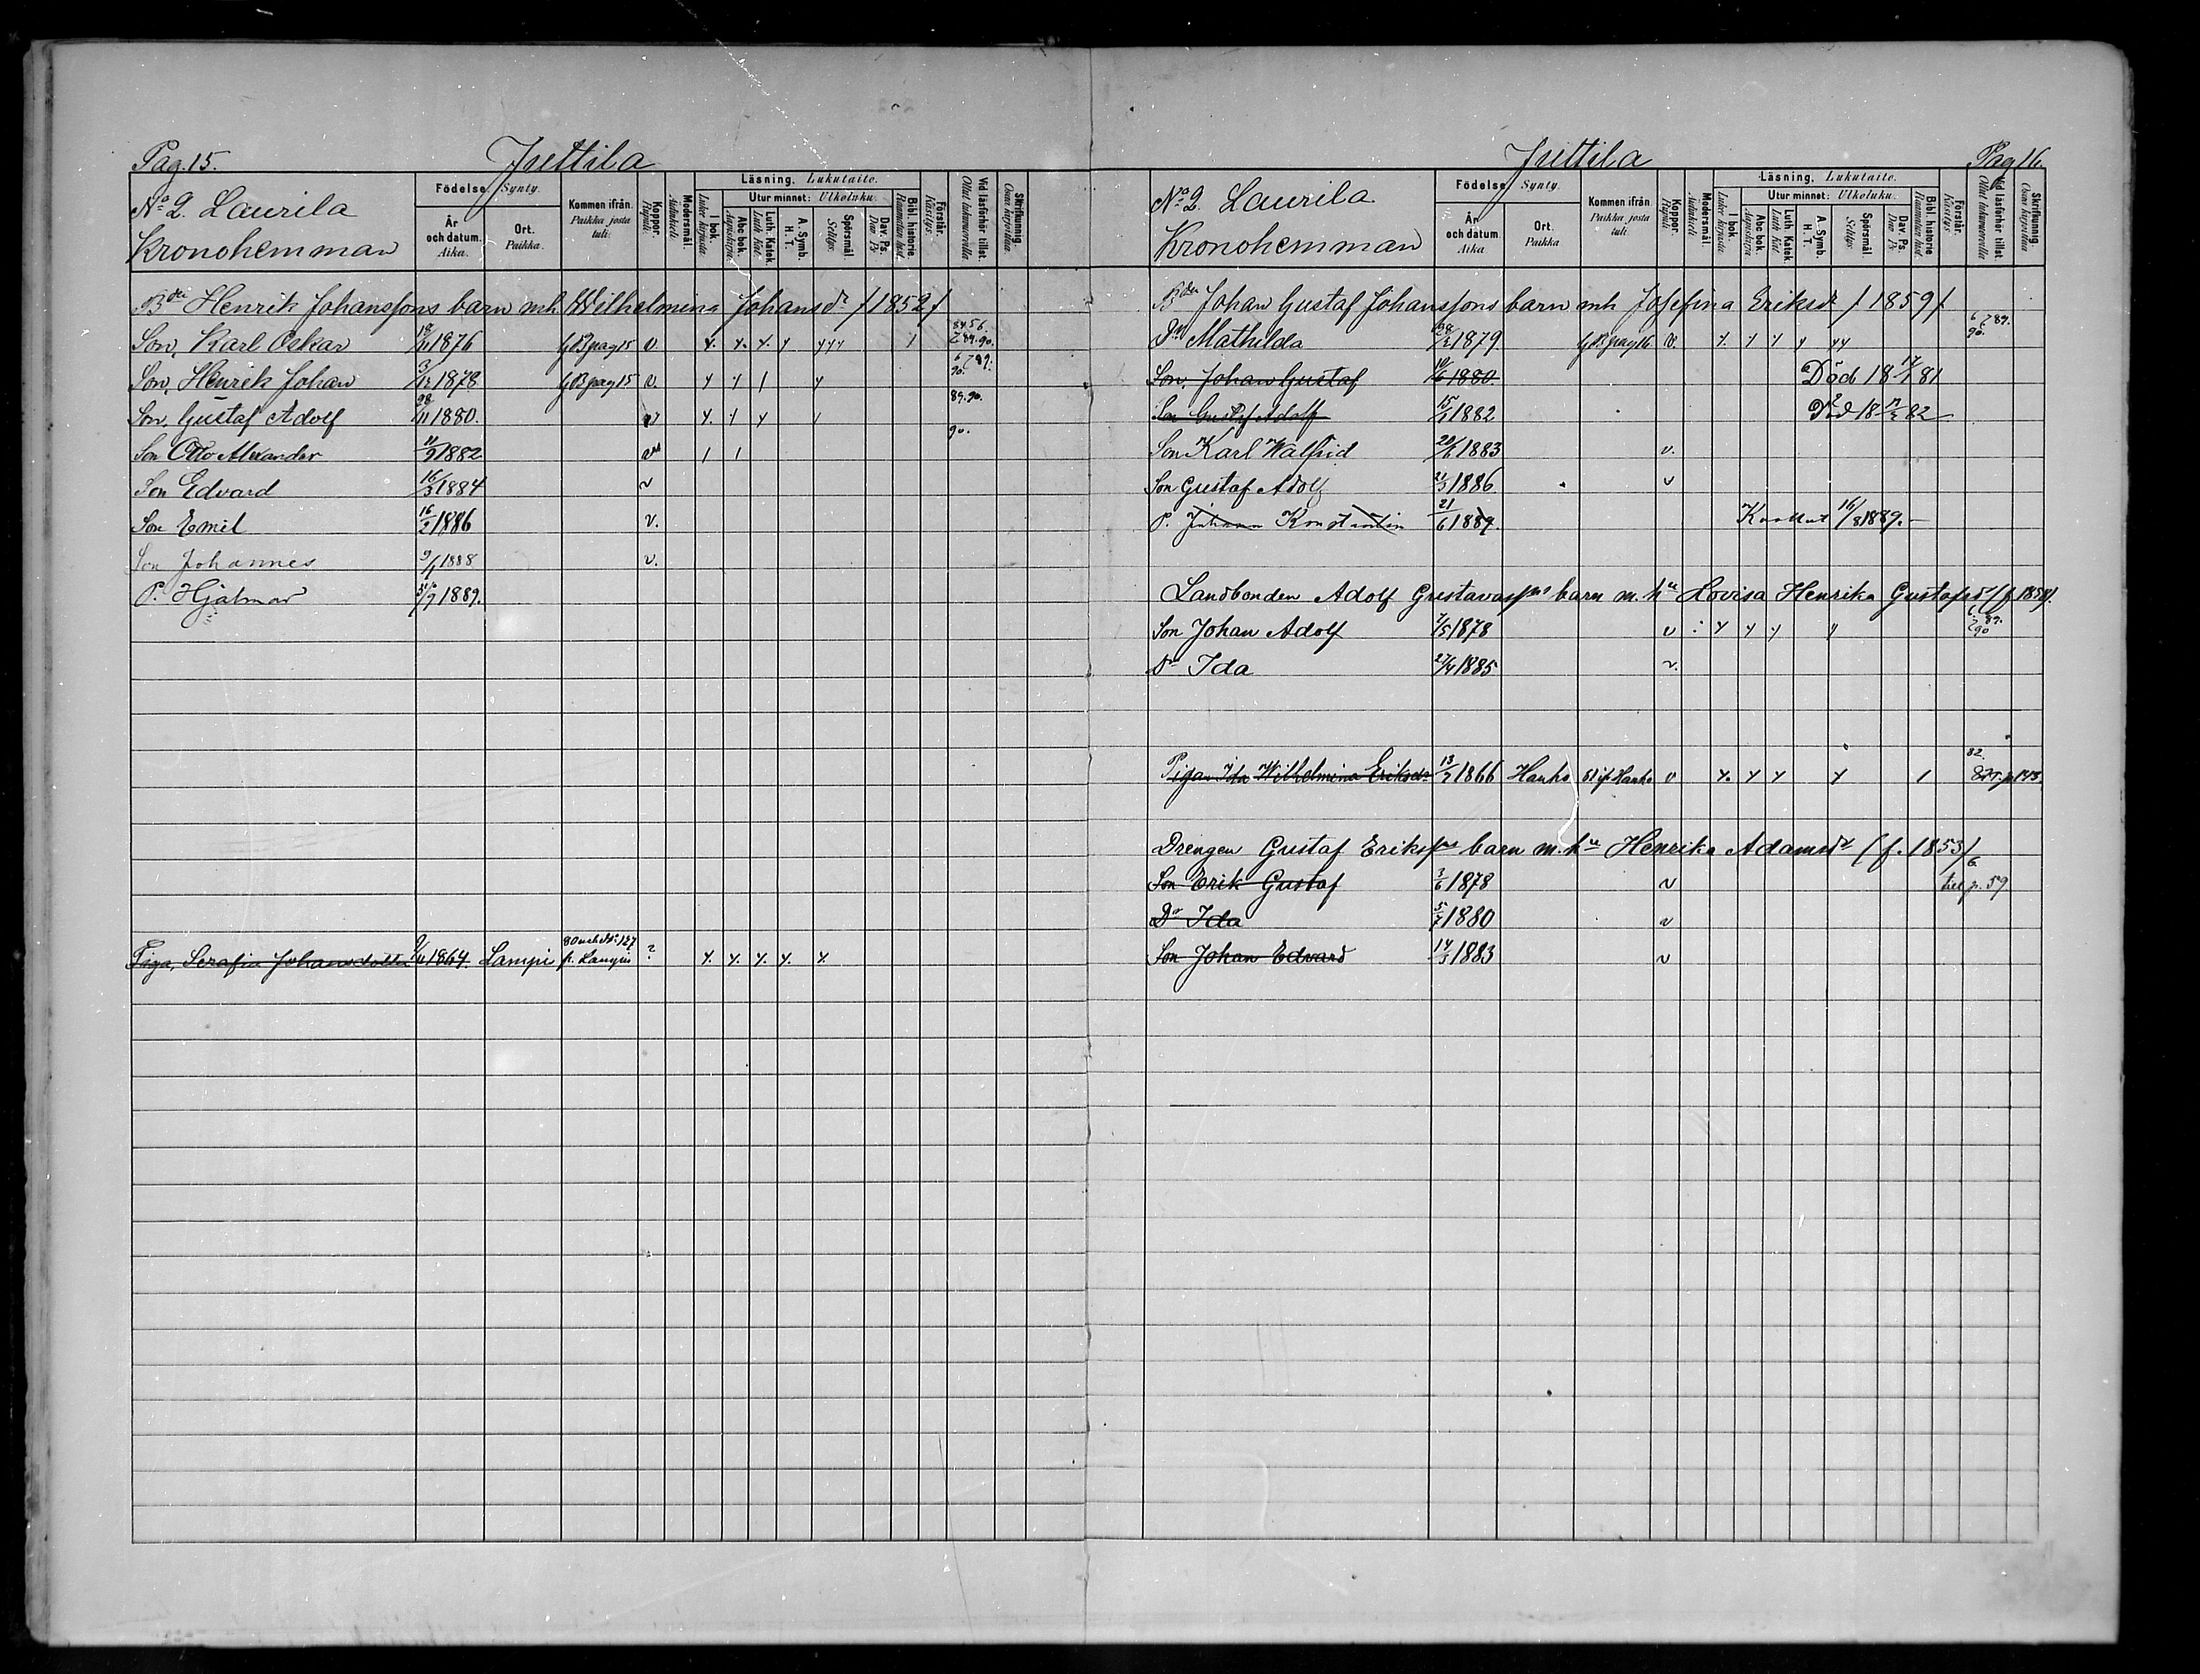 Pag. 15. Juttila
No 2. Laurila
Kronohemman
Födelse Synty.
År och datum. Aika.
Ort. Paikka.
Kommen ifrån. Paikka josta tuli.
Koppor. Rupuli.
Modersmål. Äidinkieli
Läsning. Lukutaito.
I bok. Luku kirjasta.
Utur minnet: Ulkoluku.
Abc bok. Aapiskirja.
Luth. Katek. Luth. Kat.
A. Symb. H. T.
Spörsmål Selitys.
Dav. Ps. Dav. Ps.
Bibl. historie
Förstår. Käsitys.
Vid läsförhör tillst.
Skrifkunnig. Osaa kirjoittaa
Bdn Henrik Johanssons barn mh Wilhelmina Johansdr /1852/
Son, Karl Oskar 18/11 1876 GB pag 15 v. 8456. 789.90.
Son, Henrik Johan 3/12 1878 GB pag 15 v. 6789. 90.
Son, Gustaf Adolf 28/11 1880. 89.90.
Son Otto Alexander 11/9 1882 90.
Son Edvard 16/3 1884 v
Son Emil 16/2 1886 v.
Son Johannes 9/1 1888 v.
P. Hjalmar 1889.
Piga, Serafia Johansdotter 1864. Lampis 80 att. No 127 fr. Lampis ?
Juttila Pag 16.
No 2. Laurila
Kronohemman
Födelse Synty.
År och datum Aika
Ort. Paikka
Kommen ifrån. Paikka josta tuli.
Koppor. Rupuli.
Modersmål. Äidinkieli
Läsning. Lukutaito.
I bok. Luku kirjasta.
Utur minnet: Ulkoluku.
Abc bok. Aapiskirja.
Luth. Katek. Luth. Kat
A. Symb. H. T.
Spörsmål Selitys.
Dav. Ps. Dav. Ps
Bibl. historie
Förstår. Käsitys.
Vid läsförhör tillst.
Skrifkunnig. Osaa kirjoittaa
Bdn Johan Gustaf Johanssons barn mh Josefina Eriksdr /1859/
Dr Mathilda 28/2 1879 GB pag 16 v. 6789. 90.
Son, Johan Gustaf 10/6 1880 Död 18 17/1 81
Son Gustaf Adolf 15/1 1882 Död 18 82
Son Karl Walfrid 20/6 1883 v.
Son Gustaf Adolf 21/3 1886 v
P. Johann Konstantin 21/6 1889. Kuollut 16/8 1889.
Landbonden Adolf Gustavassons barn m. hu Lovisa Henrika Gustafsd (f 1859).
Son Johan Adolf 7/5 1878 v 89. 90
Dr Ida 27/4 1885 v.
Pigan Ida Wilhelmina Eriksdr 13/7 1866 Hauho Hauho v 82
Drengen Gustaf Erikssons barn m. hu Henrika Adamsdr (f. 1853)
Son Erik Gustaf 3/6 1878 v 6. till p. 59
Dr Ida 5/7 1880 v
Son Johan Edvard 14/3 1883 v